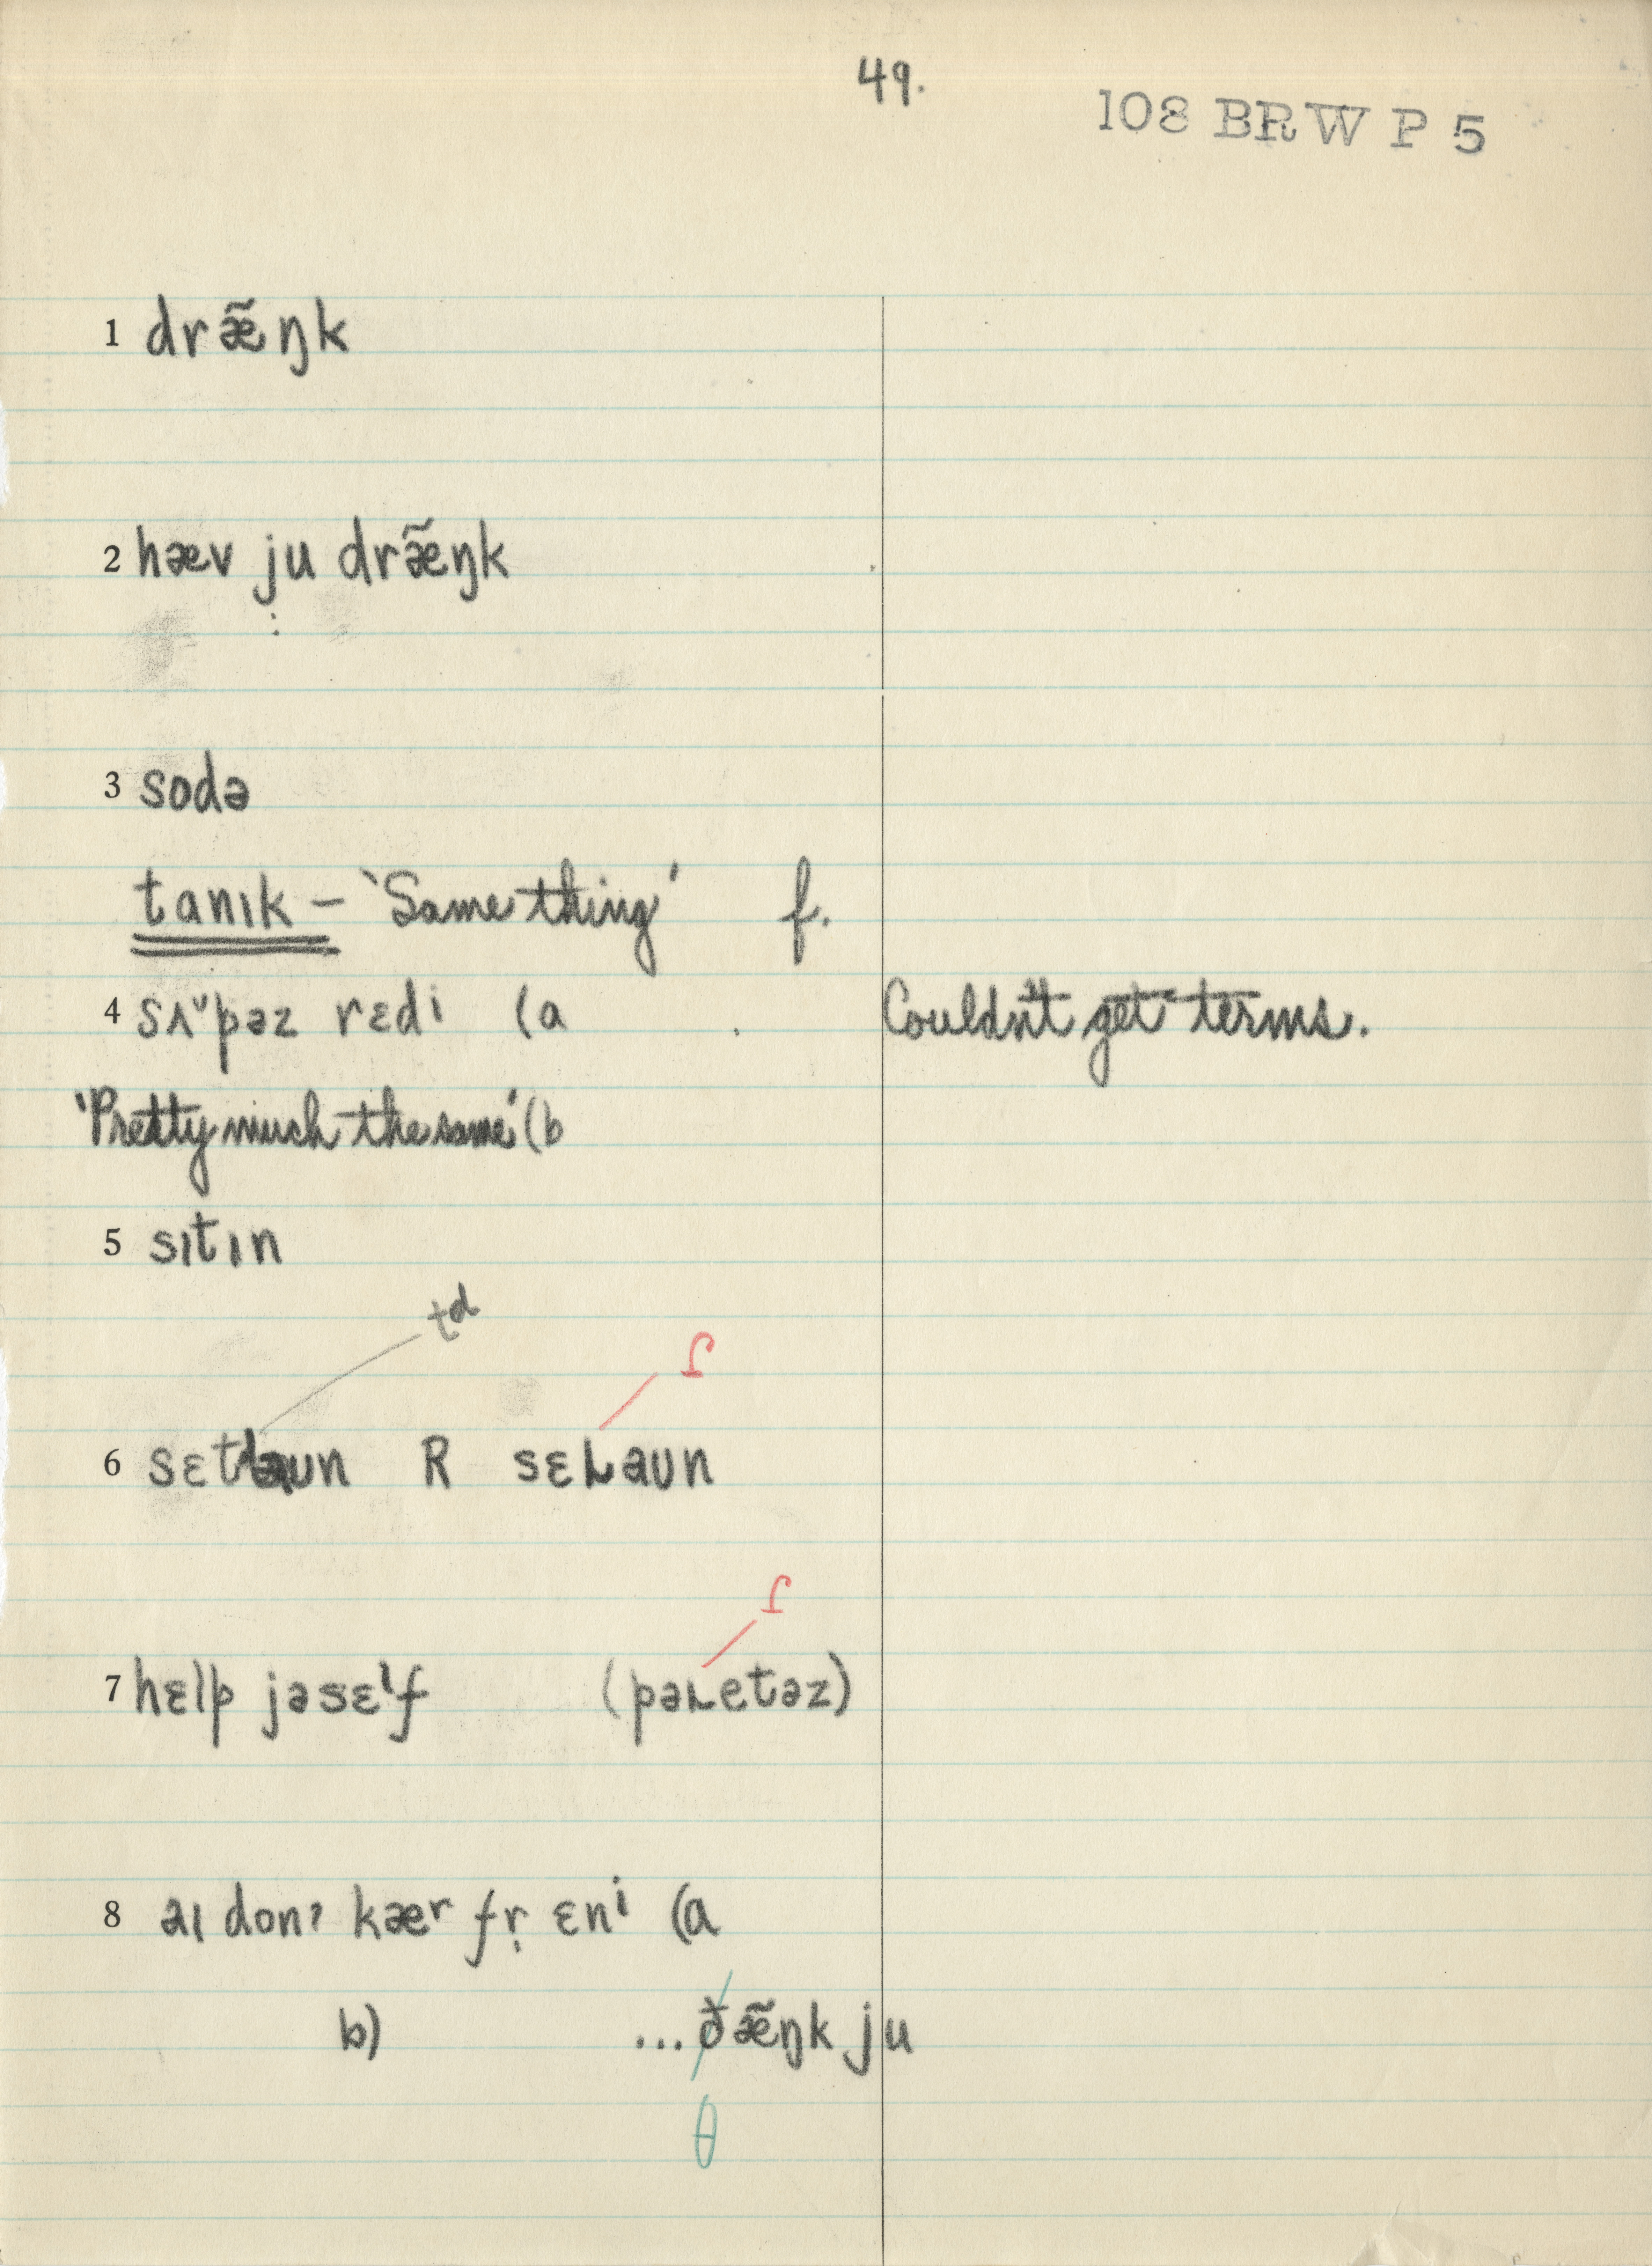 49.
108 BRW P 5
1 dræ̃ŋk
2 hæv ju dræ̃ŋk
3 sodə
tanɪk – 'Same thing' f.
4 sʌᵛpəz rɛdi (a Couldn't get terms.
'Pretty much the same' (b
5 sɪtɪn
tᵈ
ɾ
6 sɛt aun R sɛ aʊn
ɾ
7 hɛlp jəsɛˡf (pə etəz)
8 aɪ donˀ kæʳ fr̩ ɛnⁱ (a
b) ... ðæ̃ŋk ju
θ